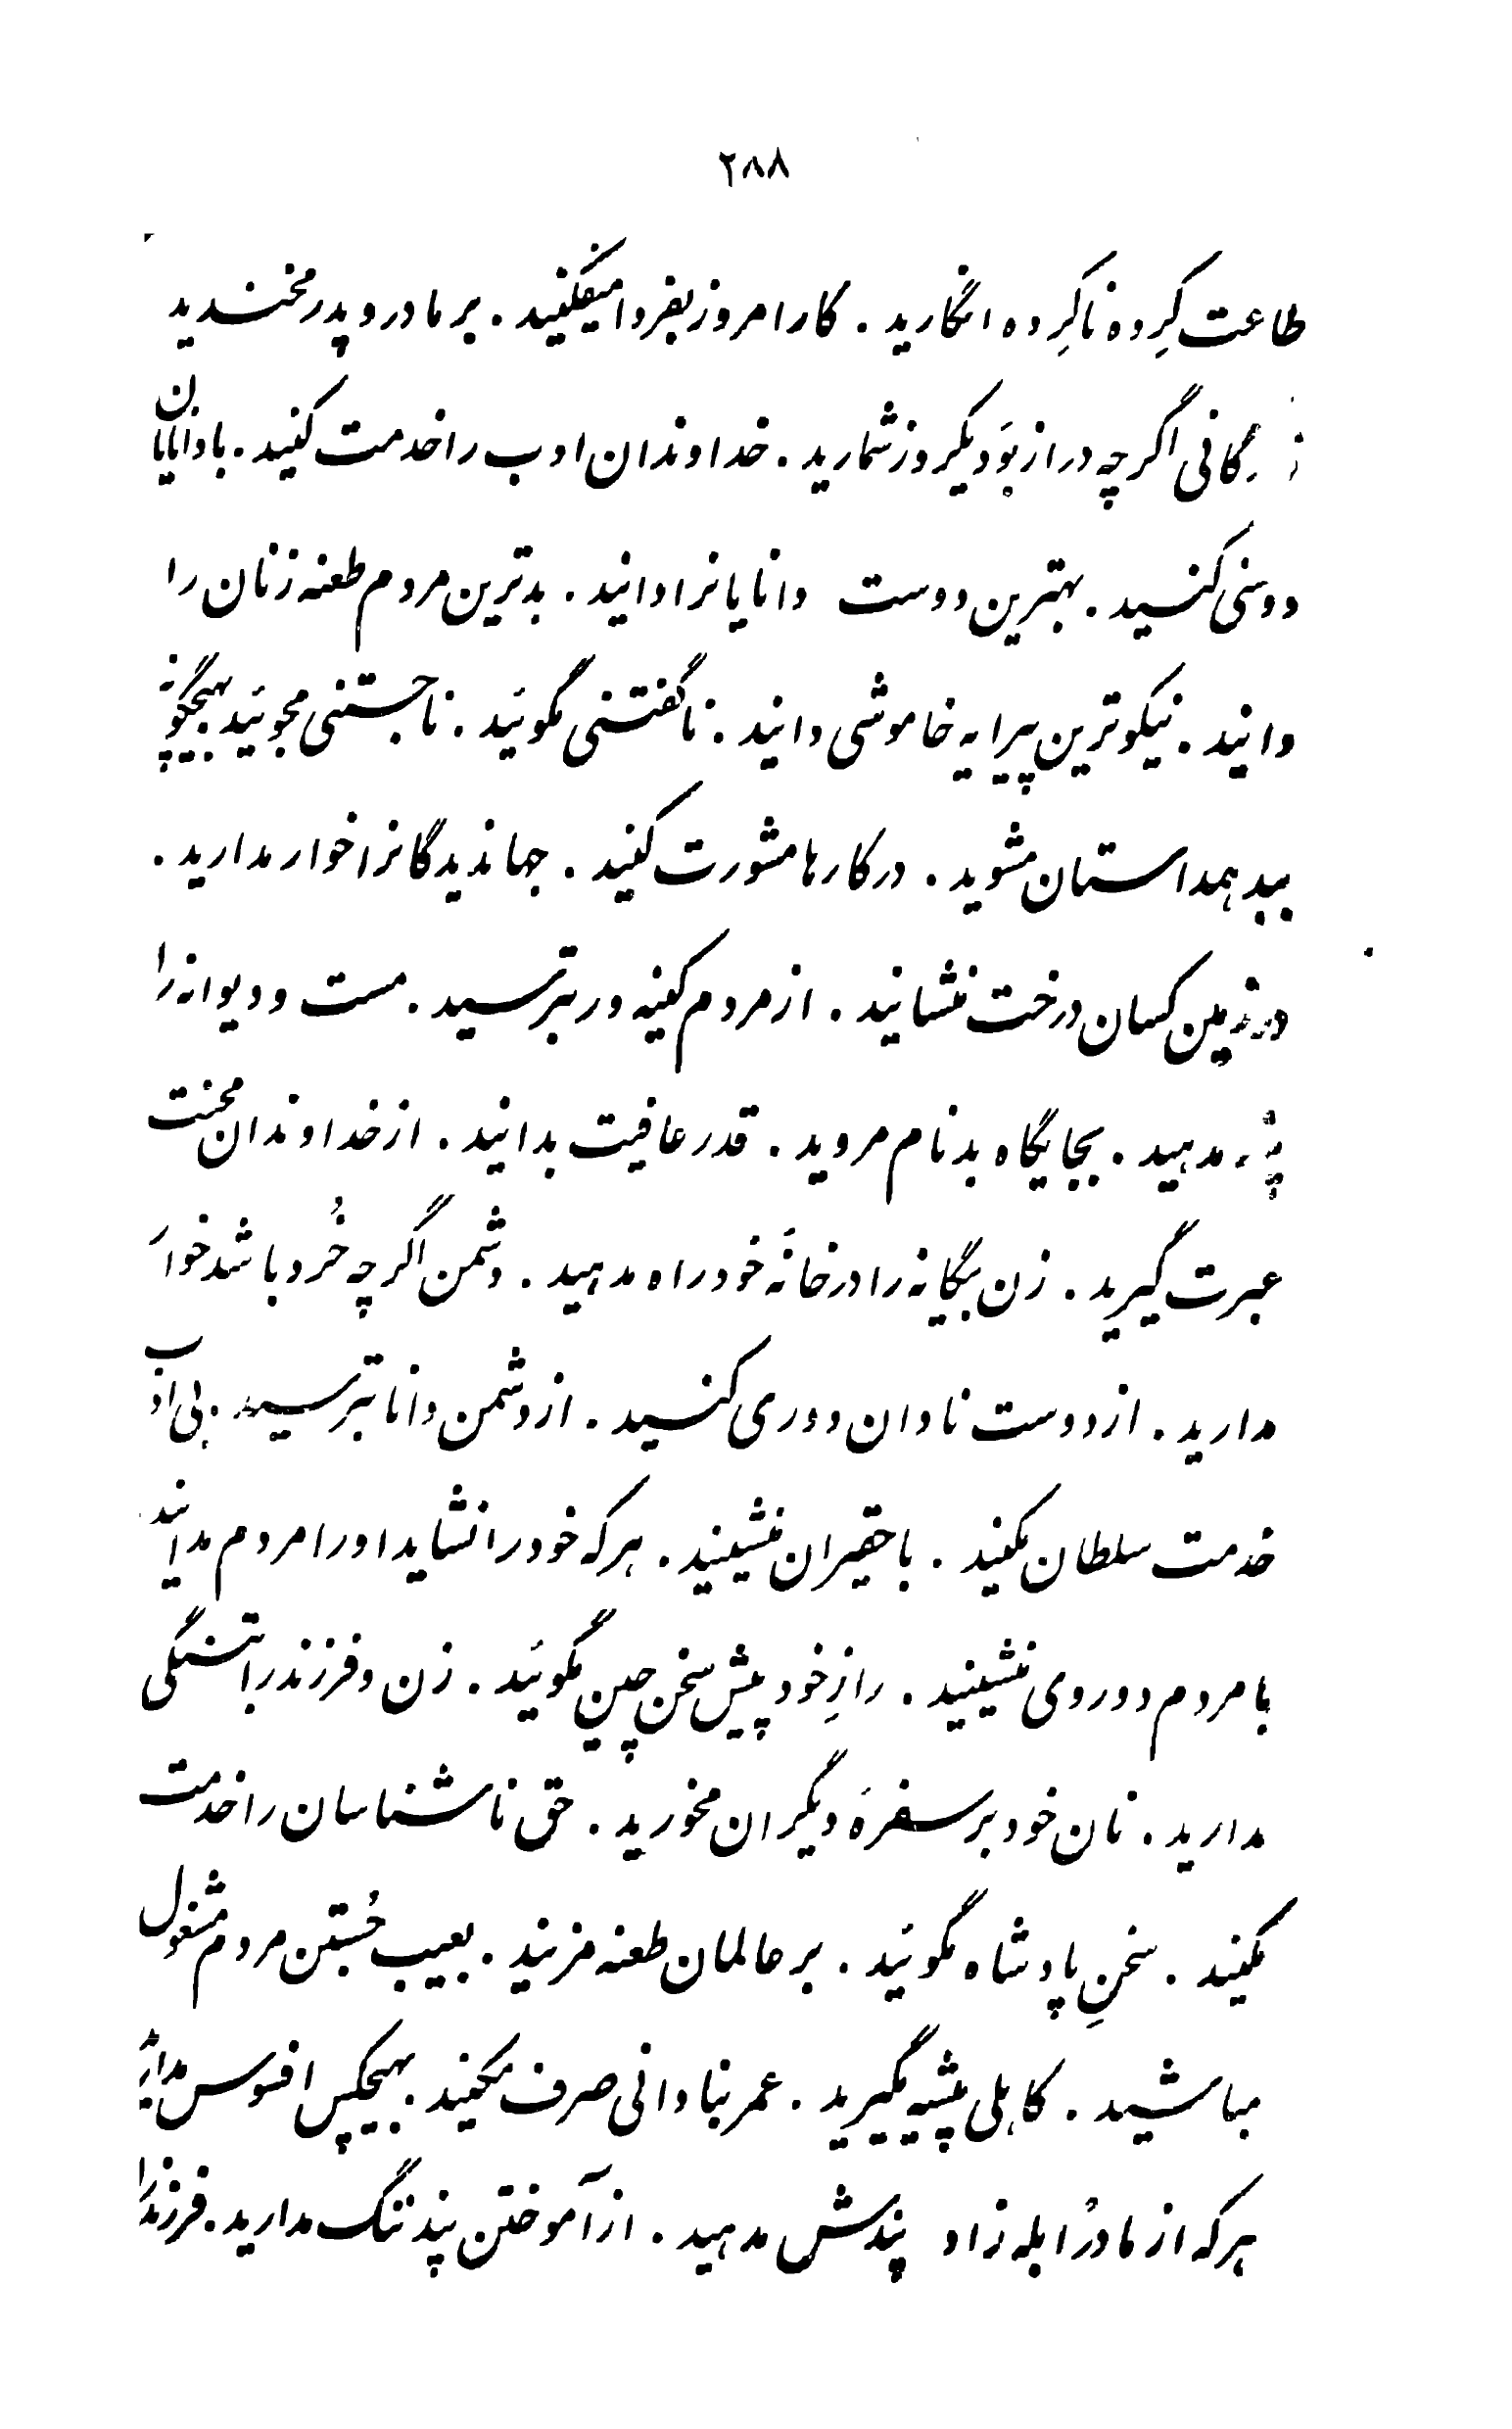 ۲۸۸
طاعت کِرده ناکِرده انگارید . کار امروز بفردا میفکنید . بر مادر و پدر مخندید
اگر چه دراز بَود یکروز شمارید . خداوندان ادب را خدمت کنید . با دانایان
دوستی کنسید . بهترین دوست دانایانرا دانید . بدترین مردم طعنه زنان را
دانید . نیکوترین پیرایه خاموشی دانید . ناگفتنی مگوئید . ناجستنی مجوئید بهیچگونه
ببد همداستان مشوید . در کارها مشورت کنید . جهاندیدگانرا خوار مدارید .
در زمین کسان درخت منشانید . از مردم کینه ور بترسید . مست و دیوانه را
پند مدهید . بجایگاه بدنام مروید . قدر عافیت بدانید . از خداوندان محنت
عبرت گیرید . زن بیگانه را در خانهٔ خود راه مدهید . دشمن اگر چه خُرد باشد خوار
مدارید . از دوست نادان دوری کنسید . از دشمن دانا بترسید . بی ادب
خدمت سلطان مکنید . با حقیران منشینید . هر که خود را نشاید او را مردم مدانید
با مردم دوروی منشینید . رازِ خود پیش سخن چین مگوئید . زن و فرزند را بتنگی
مدارید . نان خود بر سفرهٔ دیگران مخورید . حق ناشناسان را خدمت
مکنید . سخنِ پادشاه مگوئید . بر عالمان طعنه مزنید . بعیب جُستن مردم مشغول
مباشید . کاهلی پیشه مگیرید . عمر بنادانی صرف مکنید . بهیچکس افسوس مدارید
هر که از مادر ابله زاد پندش مدهید . از آموختن پند ننگ مدارید . فرزند را